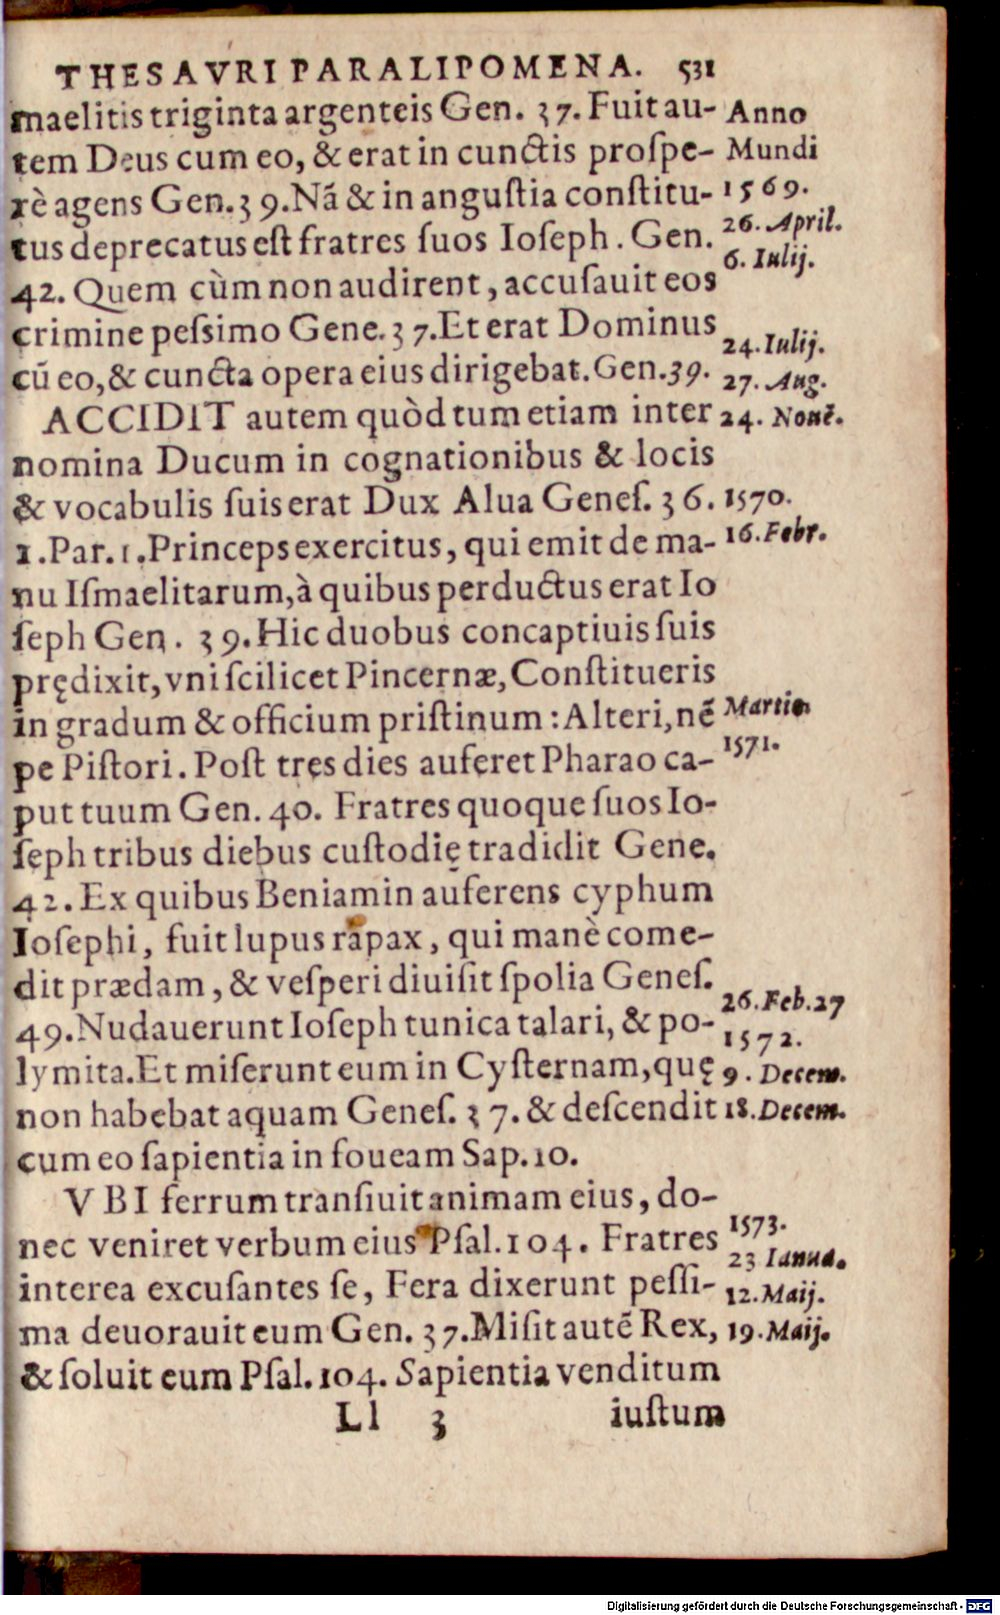 THESAVRI PARALIPOMENA. 531
maelitis triginta argenteis Gen. 37. Fuit au- Anno
tem Deus cum eo, & erat in cunctis proſpe- Mundi
rè agens Gen. 39. Nā & in anguſtia conſtitu- 1569.
tus deprecatus eſt fratres ſuos Ioſeph. Gen. 26. April.
6. Iulij.
42. Quem cùm non audirent, accuſauit eos
crimine peſsimo Gene. 37. Et erat Dominus 24. Iulij.
cū eo, & cuncta opera eius dirigebat. Gen. 39. 27. Aug.
ACCIDIT autem quòd tum etiam inter 24. Nouē.
nomina Ducum in cognationibus & locis
& vocabulis ſuis erat Dux Alua Geneſ. 36. 1570.
1. Par. 1. Princeps exercitus, qui emit de ma- 16. Febr.
nu Iſmaelitarum, à quibus perductus erat Io
ſeph Gen. 39. Hic duobus concaptiuis ſuis
prędixit, vni ſcilicet Pincernæ, Conſtitueris
in gradum & officium priſtinum: Alteri, nē Martio
pe Piſtori. Poſt tres dies auferet Pharao ca- 1571.
put tuum Gen. 40. Fratres quoque ſuos Io-
ſeph tribus diebus cuſtodię tradidit Gene.
42. Ex quibus Beniamin auferens cyphum
Ioſephi, fuit lupus rapax, qui manè come-
dit prædam, & veſperi diuiſit ſpolia Geneſ.
26. Feb. 27
49. Nudauerunt Ioſeph tunica talari, & po- 1572.
lymita. Et miſerunt eum in Cyſternam, quę 9. Decem.
non habebat aquam Geneſ. 37. & deſcendit 18. Decem.
cum eo ſapientia in foueam Sap. 10.
VBI ferrum tranſiuit animam eius, do-
nec veniret verbum eius Pſal. 104. Fratres 1573.
23 Ianua.
interea excuſantes ſe, Fera dixerunt peſſi- 12. Maij.
ma deuorauit eum Gen. 37. Miſit autē Rex, 19. Maij.
& ſoluit eum Pſal. 104. Sapientia venditum
Ll 3 iuſtum
Digitalisierung gefördert durch die Deutsche Forschungsgemeinschaft - DFG